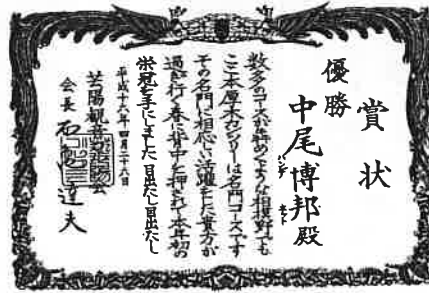 賞状
優勝
中尾博邦殿
バンデ
数多のコースが犇めくような相模野でも
ここ本厚木カンツリーは名門コースです
その名門に相応しい活躍をした貴方が
過ぎ行く春に背中を押されて本年初の
栄冠を手にしました 目出たし目出たし
平成十六年四月二十六日
芸陽観音
会長
達夫